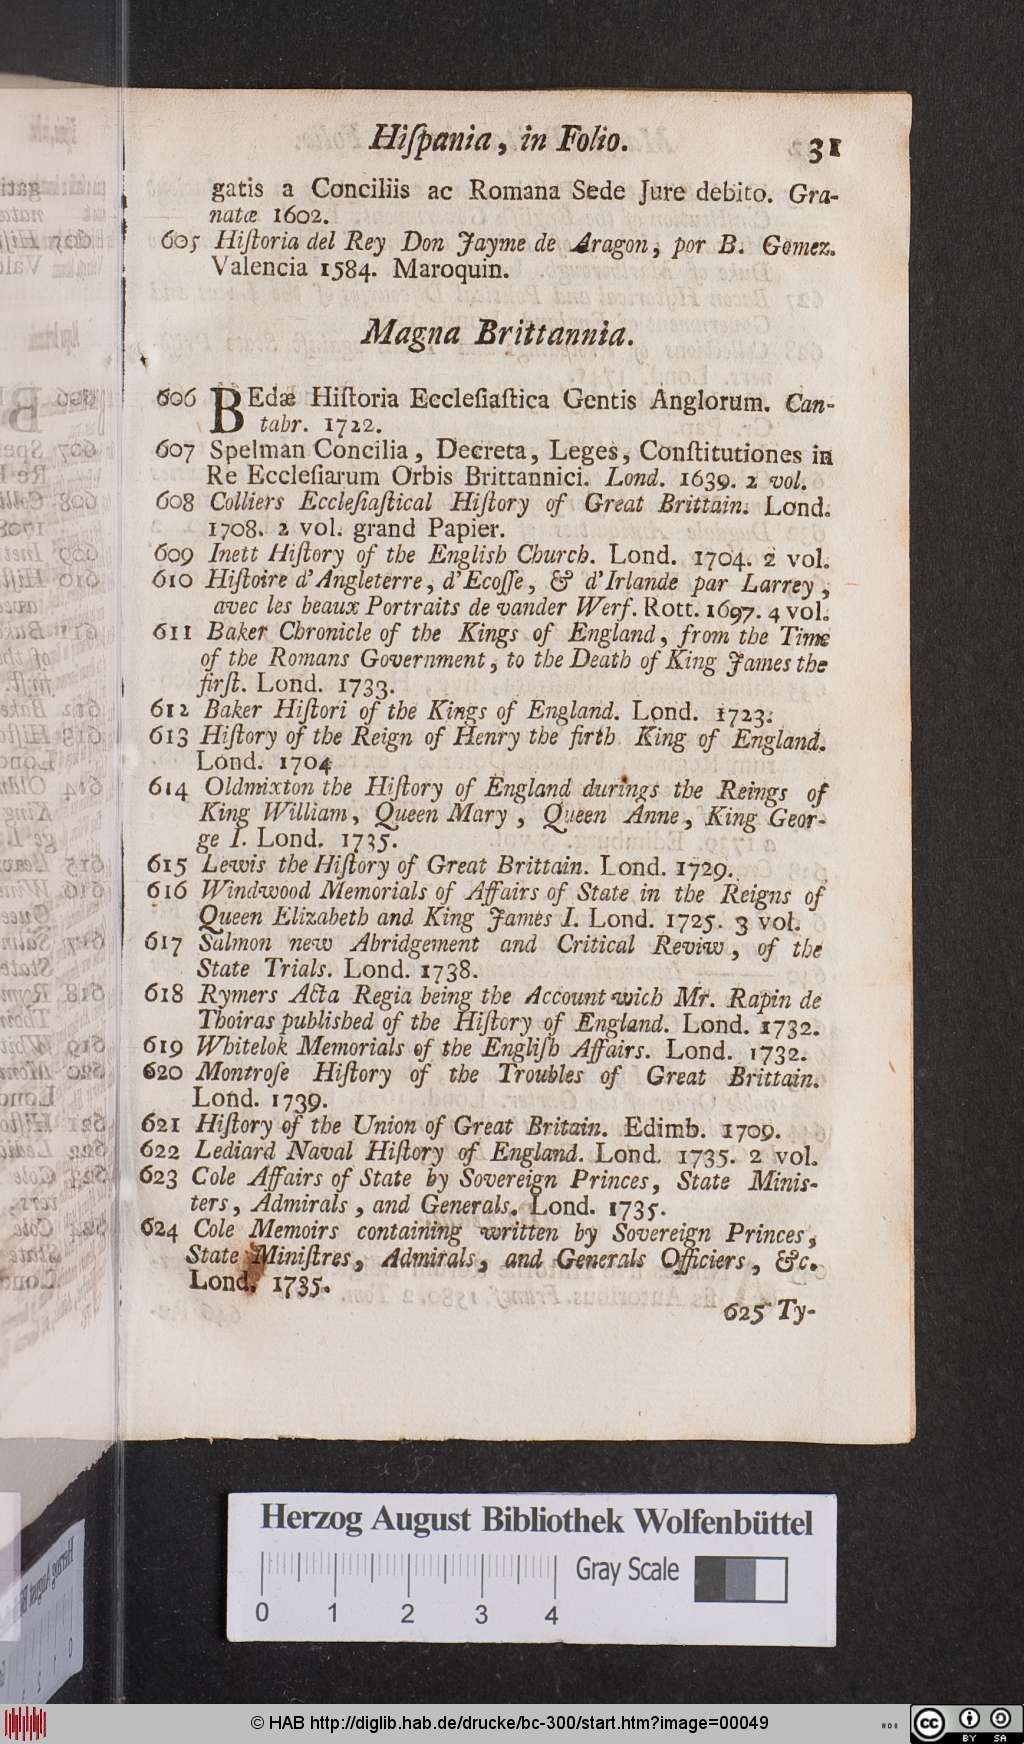 Hiſpania, in Folio. 31
gatis a Conciliis ac Romana Sede Jure debito. Gra-
natæ 1602.
605 Hiſtoria del Rey Don Jayme de Aragon, por B. Gomez.
Valencia 1584. Maroquin.
Magna Brittannia.
606 BEdæ Hiſtoria Eccleſiaſtica Gentis Anglorum. Can-
tabr. 1722.
607 Spelman Concilia, Decreta, Leges, Conſtitutiones in
Re Eccleſiarum Orbis Brittannici. Lond. 1639. 2 vol.
608 Colliers Eccleſiaſtical Hiſtory of Great Brittain. Lond.
1708. 2 vol. grand Papier.
609 Inett Hiſtory of the English Church. Lond. 1704. 2 vol.
610 Hiſtoire d'Angleterre, d'Ecoſſe, & d'Irlande par Larrey,
avec les beaux Portraits de vander Werf. Rott. 1697. 4 vol.
611 Baker Chronicle of the Kings of England, from the Time
of the Romans Government, to the Death of King James the
firſt. Lond. 1733.
612 Baker Hiſtori of the Kings of England. Lond. 1723.
613 Hiſtory of the Reign of Henry the firth King of England.
Lond. 1704
614 Oldmixton the Hiſtory of England durings the Reings of
King William, Queen Mary, Queen Anne, King Geor-
ge I. Lond. 1735.
615 Lewis the Hiſtory of Great Brittain. Lond. 1729.
616 Windwood Memorials of Affairs of State in the Reigns of
Queen Elizabeth and King James I. Lond. 1725. 3 vol.
617 Salmon new Abridgement and Critical Reviw, of the
State Trials. Lond. 1738.
618 Rymers Acta Regia being the Account wich Mr. Rapin de
Thoiras published of the Hiſtory of England. Lond. 1732.
619 Whitelok Memorials of the Engliſh Affairs. Lond. 1732.
620 Montroſe Hiſtory of the Troubles of Great Brittain.
Lond. 1739.
621 Hiſtory of the Union of Great Britain. Edimb. 1709.
622 Lediard Naval Hiſtory of England. Lond. 1735. 2 vol.
623 Cole Affairs of State by Sovereign Princes, State Minis-
ters, Admirals, and Generals. Lond. 1735.
624 Cole Memoirs containing written by Sovereign Princes,
State Miniſtres, Admirals, and Generals Officiers, &c.
Lond. 1735.
625 Ty-
Herzog August Bibliothek Wolfenbüttel
Gray Scale
0 1 2 3 4
© HAB http://diglib.hab.de/drucke/bc-300/start.htm?image=00049
cc BY SA